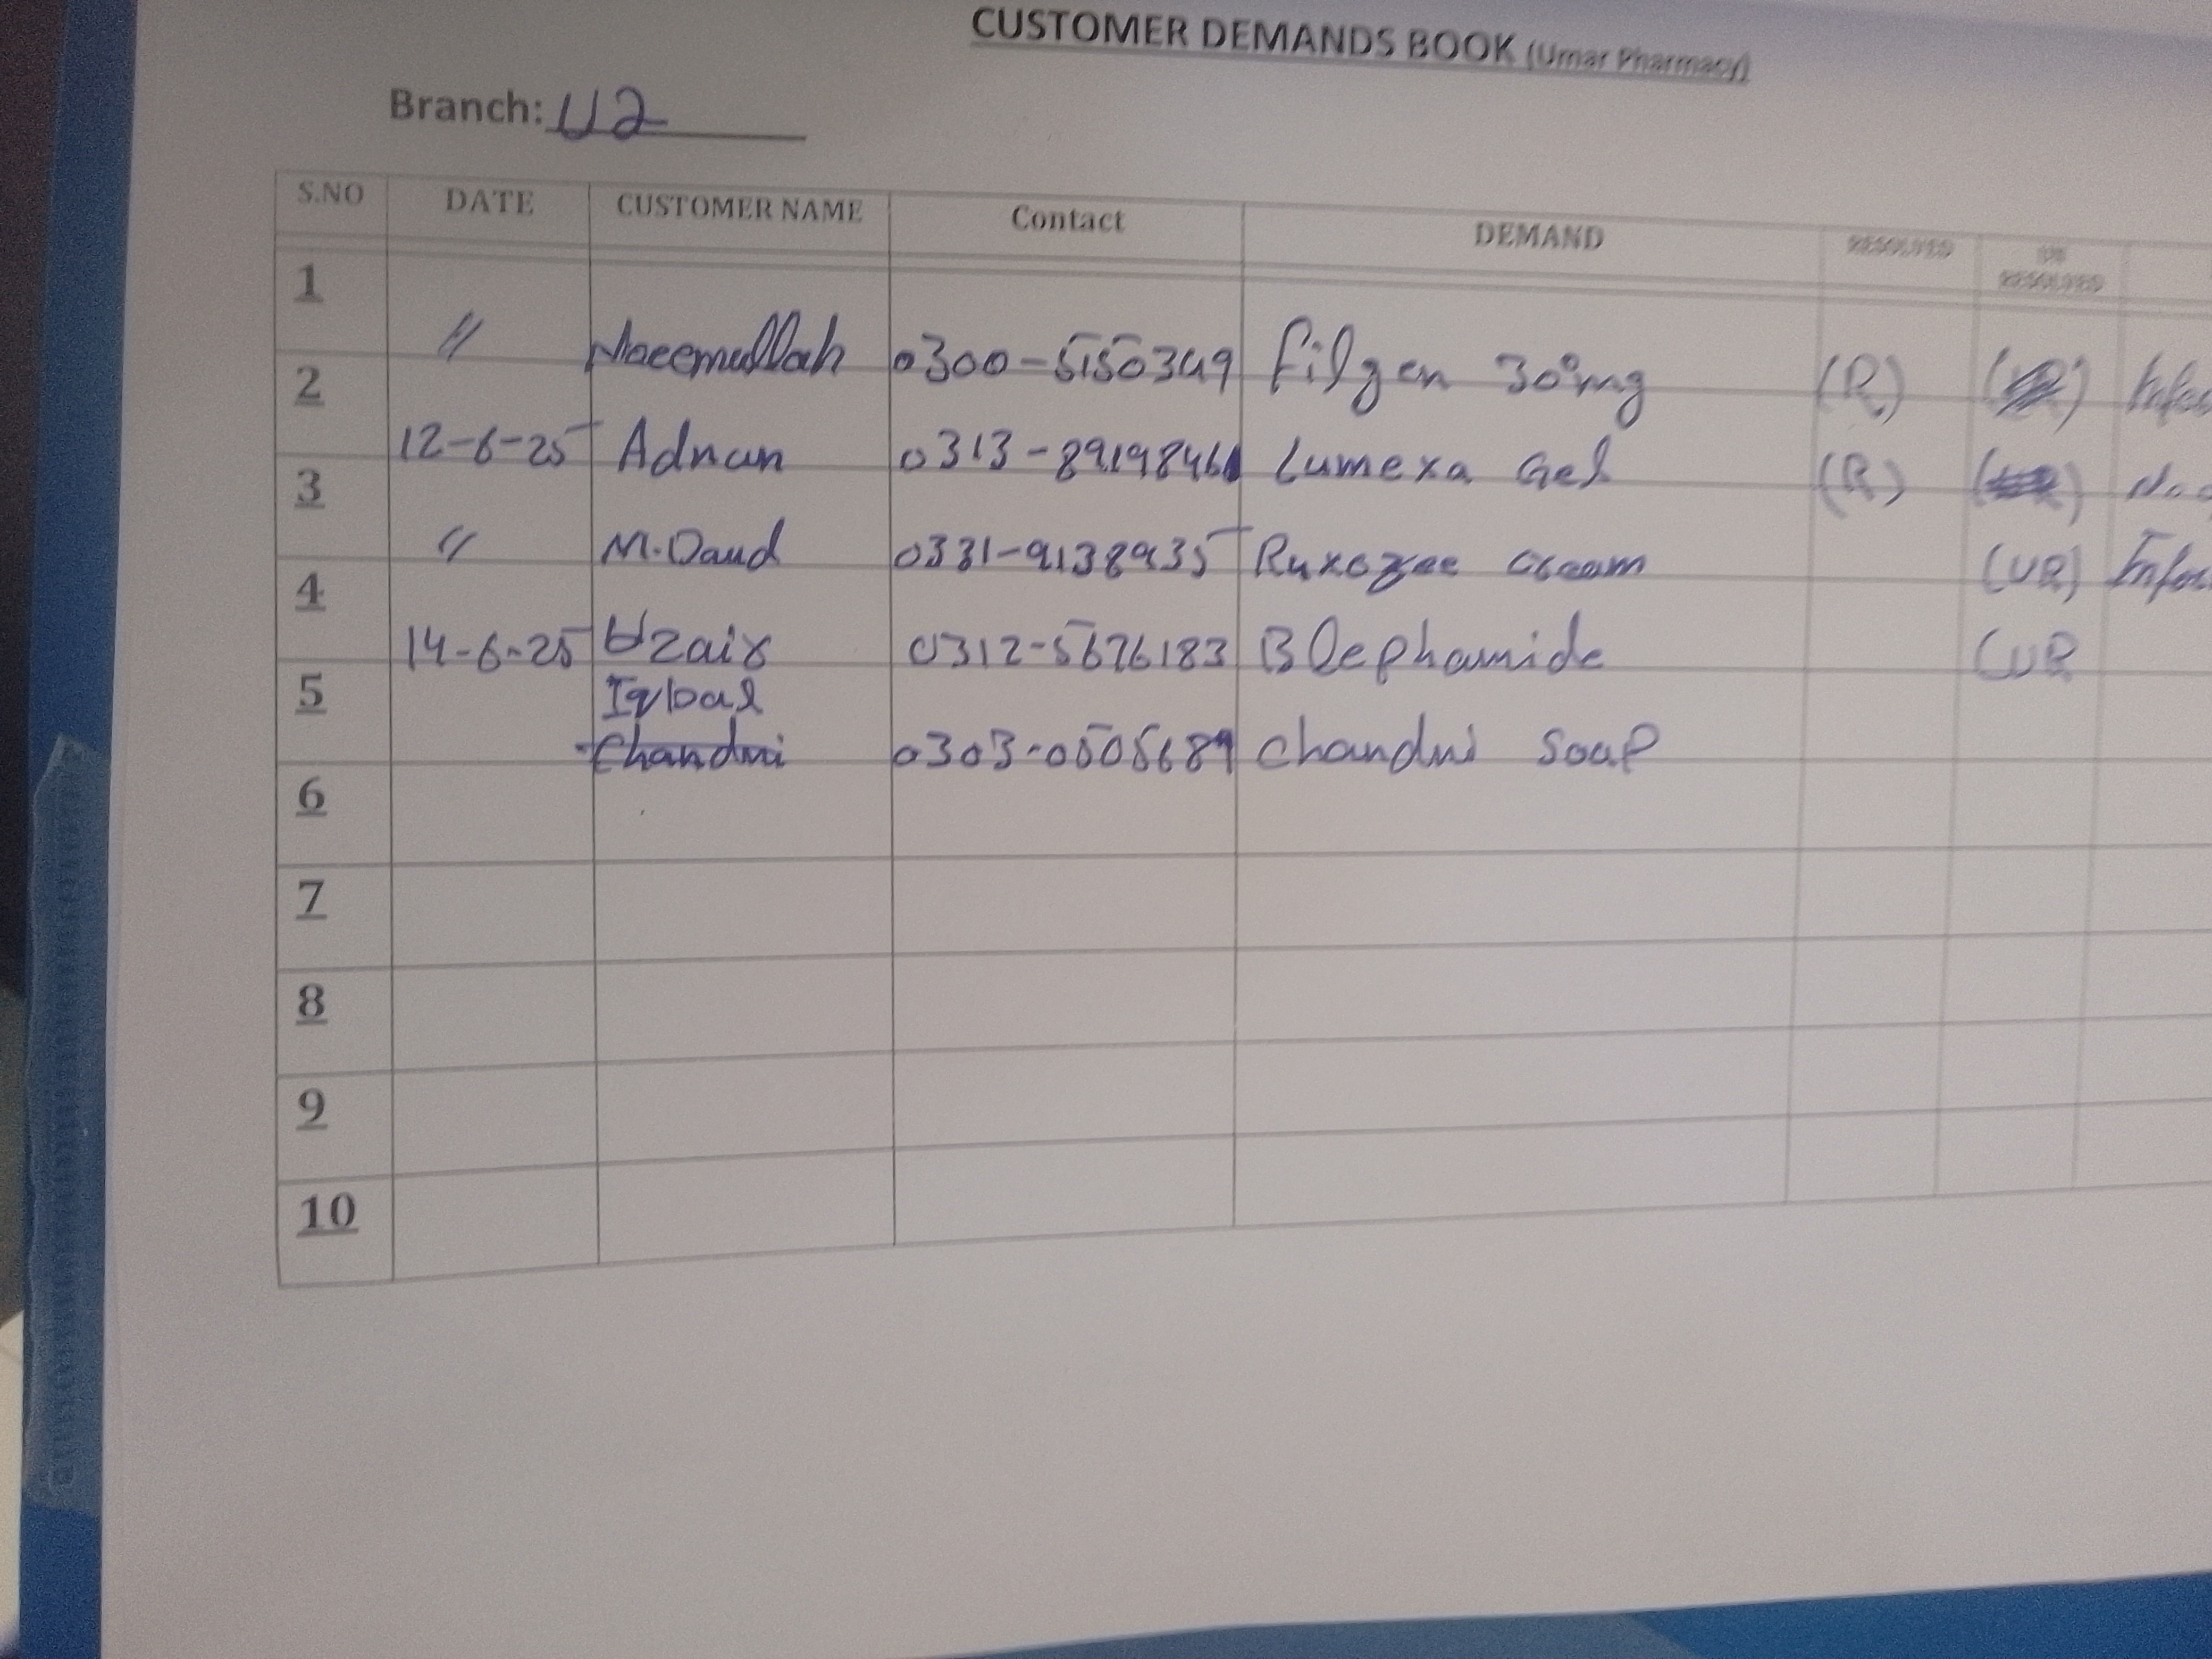 CUSTOMER DEMANDS BOOK (Umar Pharmacy)
Branch: U2
S.NO DATE CUSTOMER NAME Contact DEMAND RESOLVED UN RESOLVED
1 〃 Naeemullah 0300-5150349 Filgen 300mg (R)
2 12-6-25 Adnan 0313-8919846 Lumexa Gel (R)
3 〃 M.Daud 0331-9138935 Ruxozee Cream (UR)
4 14-6-25 Uzair 0312-5676183 Blephamide (UR
5 Iqbal
Chandni 0303-0505689 Chandni Soap
6
7
8
9
10